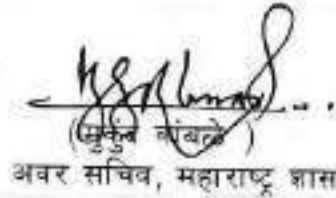 (मुकुंद कांबळे)
अवर सचिव, महाराष्ट्र शास